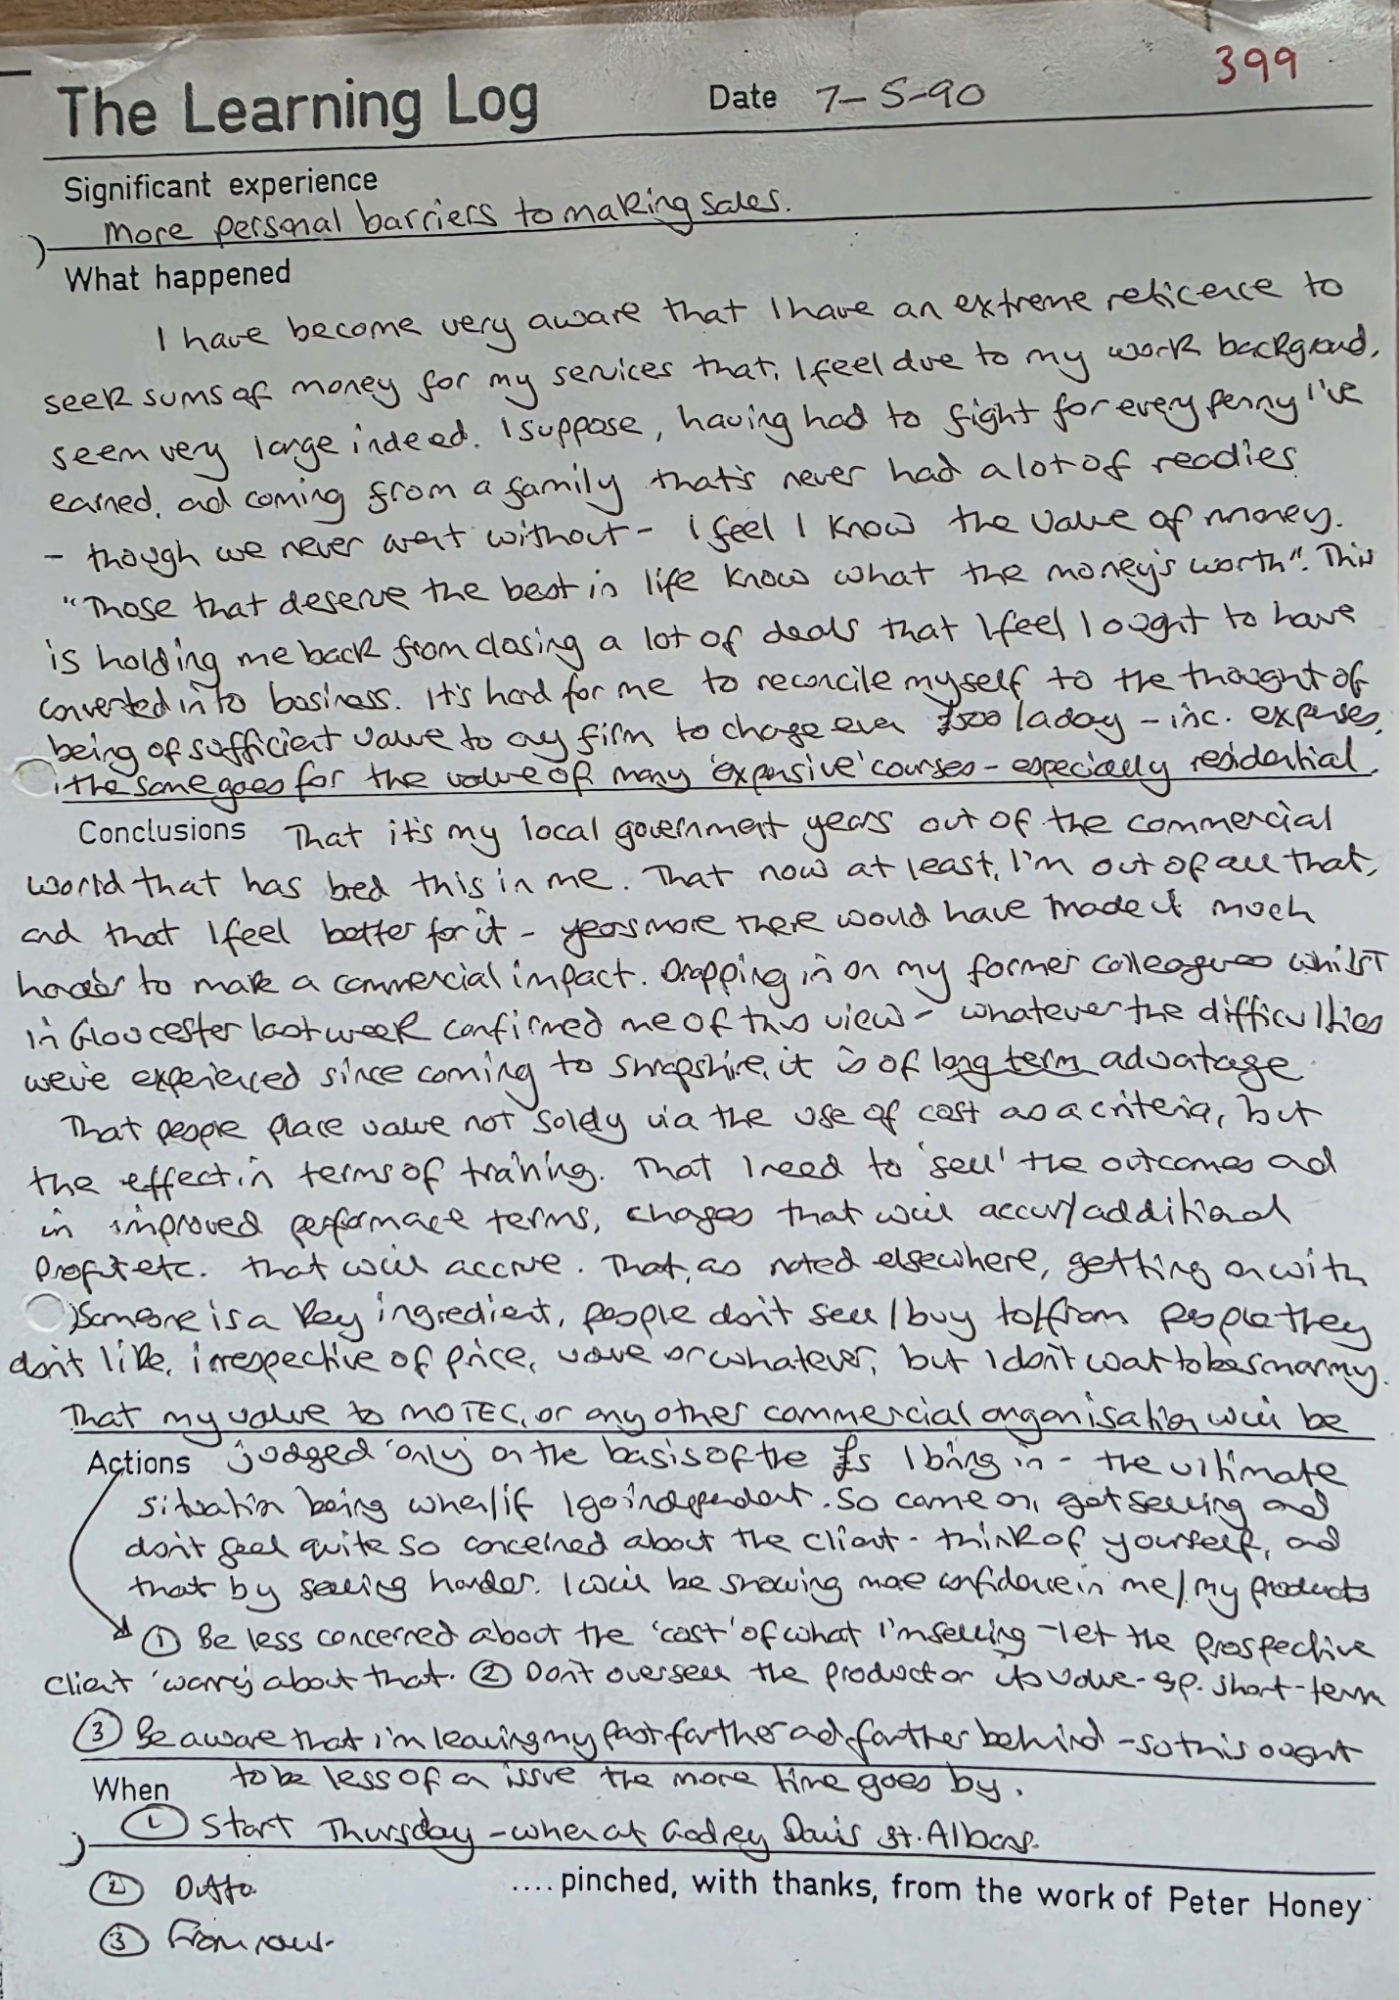 399
The Learning Log Date 7-5-90
Significant experience
More personal barriers to making sales.
What happened
I have become very aware that I have an extreme reticence to
seek sums of money for my services that, I feel due to my work background,
seem very large indeed. I suppose, having had to fight for every penny I've
earned, and coming from a family that's never had a lot of readies
- though we never went without - I feel I know the value of money.
"Those that deserve the best in life know what the money's worth". This
is holding me back from closing a lot of deals that I feel I ought to have
converted into business. It's hard for me to reconcile myself to the thought of
being of sufficient value to any firm to charge even a day - inc. expenses,
the same goes for the value of many 'expensive' courses - especially residential.
Conclusions That it's my local government years out of the commercial
world that has bred this in me. That now at least, I'm out of all that,
and that I feel better for it - years more there would have made it much
harder to make a commercial impact. Dropping in on my former colleagues whilst
in Gloucester last week confirmed me of this view - whatever the difficulties
we've experienced since coming to Shropshire, it is of long term advantage.
That people place value not solely via the use of cost as a criteria, but
the effect in terms of training. That I need to 'sell' the outcomes and
in improved performance terms, changes that will accur/additional
profit etc. that will accrue. That, as noted elsewhere, getting on with
someone is a key ingredient, people don't sell/buy to/from people they
don't like, irrespective of price, value or whatever, but I don't want to be smarmy.
That my value to MOTEC, or any other commercial organisation will be
Actions judged 'only' on the basis of the £s I bring in - the ultimate
situation being when/if I go independent. So come on, get selling and
don't feel quite so concerned about the client - think of yourself, and
that by selling harder, I will be showing more confidence in me/my products
① Be less concerned about the 'cost' of what I'm selling - let the prospective
client 'worry' about that. ② Don't oversell the product or its value - sp. short-term
③ Be aware that I'm leaving my past farther and farther behind - so this ought
to be less of an issue the more time goes by.
When
① Start Thursday - when at Godfrey Davis St. Albans.
② Ditto.
.... pinched, with thanks, from the work of Peter Honey
③ From now.